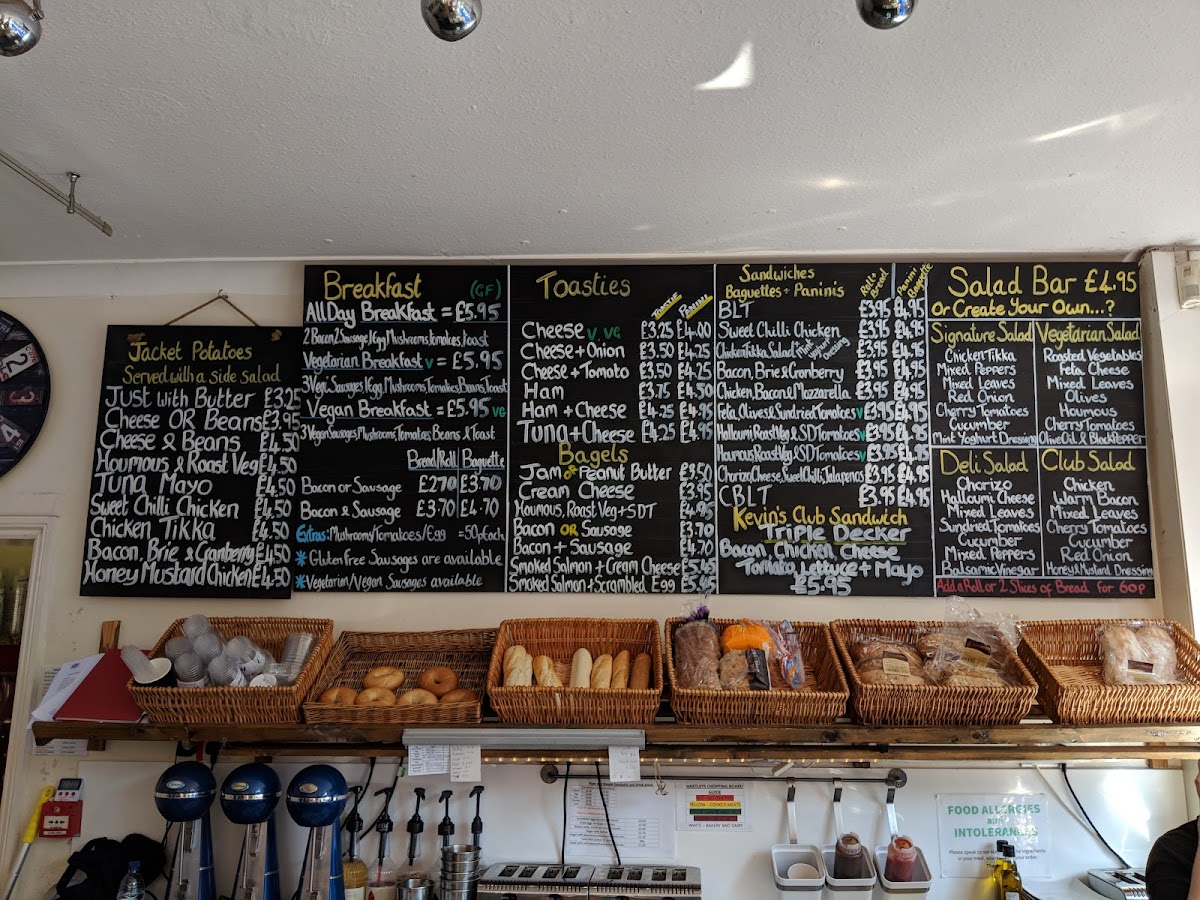 Jacket Potatoes
Served with a side salad
Just with Butter £3.25
Cheese OR Beans £3.95
Cheese & Beans £4.50
Houmous & Roast Veg £4.50
Tuna Mayo £4.50
Sweet Chilli Chicken £4.50
Chicken Tikka £4.50
Bacon, Brie & Cranberry £4.50
Honey Mustard Chicken £4.50
Breakfast (GF)
All Day Breakfast = £5.95
2 Bacon, 2 Sausage, 1 Egg, Mushrooms, Tomatoes, Toast
Vegetarian Breakfast V = £5.95
3 Vegi Sausages, 1 Egg, Mushrooms, Tomatoes, Beans, Toast
Vegan Breakfast = £5.95 VG
3 Vegan Sausages, Mushrooms, Tomatoes, Beans & Toast
Bread/Roll Baguette
Bacon or Sausage £2.70 £3.70
Bacon & Sausage £3.70 £4.70
Extras: Mushrooms/Tomatoes/Egg =50p Each
* Gluten free Sausages are available
* Vegetarian/Vegan Sausages available
Toasties
Toastie Panini
Cheese V, VG £3.25 £4.00
Cheese + Onion £3.50 £4.25
Cheese + Tomato £3.50 £4.25
Ham £3.75 £4.50
Ham + Cheese £4.25 £4.95
Tuna + Cheese £4.25 £4.95
Bagels
Jam or Peanut Butter £3.50
Cream Cheese £3.95
Houmous, Roast Veg + SDT £4.95
Bacon OR Sausage £3.70
Bacon + Sausage £4.70
Smoked Salmon + Cream Cheese £5.45
Smoked Salmon + Scrambled Egg £5.45
Sandwiches
Baguettes + Paninis
Roll + Bread
Panini + Baguette
BLT £3.95 £4.95
Sweet Chilli Chicken £3.95 £4.95
Chicken Tikka Salad + Mint Yoghurt Dressing £3.95 £4.95
Bacon, Brie & Cranberry £3.95 £4.95
Chicken, Bacon & Mozzarella £3.95 £4.95
Feta, Olives & Sundried Tomatoes V £3.95 £4.95
Halloumi, Roast Veg & SD Tomatoes V £3.95 £4.95
Houmous, Roast Veg & SD Tomatoes V £3.95 £4.95
Chorizo, Cheese, Sweet Chilli, Jalapenos £3.95 £4.95
CBLT £3.95 £4.95
Kevin's Club Sandwich
Triple Decker
Bacon, Chicken, Cheese
Tomato, Lettuce + Mayo
£5.95
Salad Bar £4.95
Or Create Your Own...?
Signature Salad
Chicken Tikka
Mixed Peppers
Mixed Leaves
Red Onion
Cherry Tomatoes
Cucumber
Mint Yoghurt Dressing
Vegetarian Salad
Roasted Vegetables
Feta Cheese
Mixed Leaves
Olives
Houmous
Cherry Tomatoes
Olive Oil & Black Pepper
Deli Salad
Chorizo
Halloumi Cheese
Mixed Leaves
Sundried Tomatoes
Cucumber
Mixed Peppers
Balsamic Vinegar
Club Salad
Chicken
Warm Bacon
Mixed Leaves
Cherry Tomatoes
Cucumber
Red Onion
Honey & Mustard Dressing
Add a Roll or 2 Slices of Bread for 60p
HARTLEYS CHOPPING BOARD
GUIDE
YELLOW - COOKED MEATS
WHITE - BAKERY AND DAIRY
FOOD ALLERGIES
and
INTOLERANCES